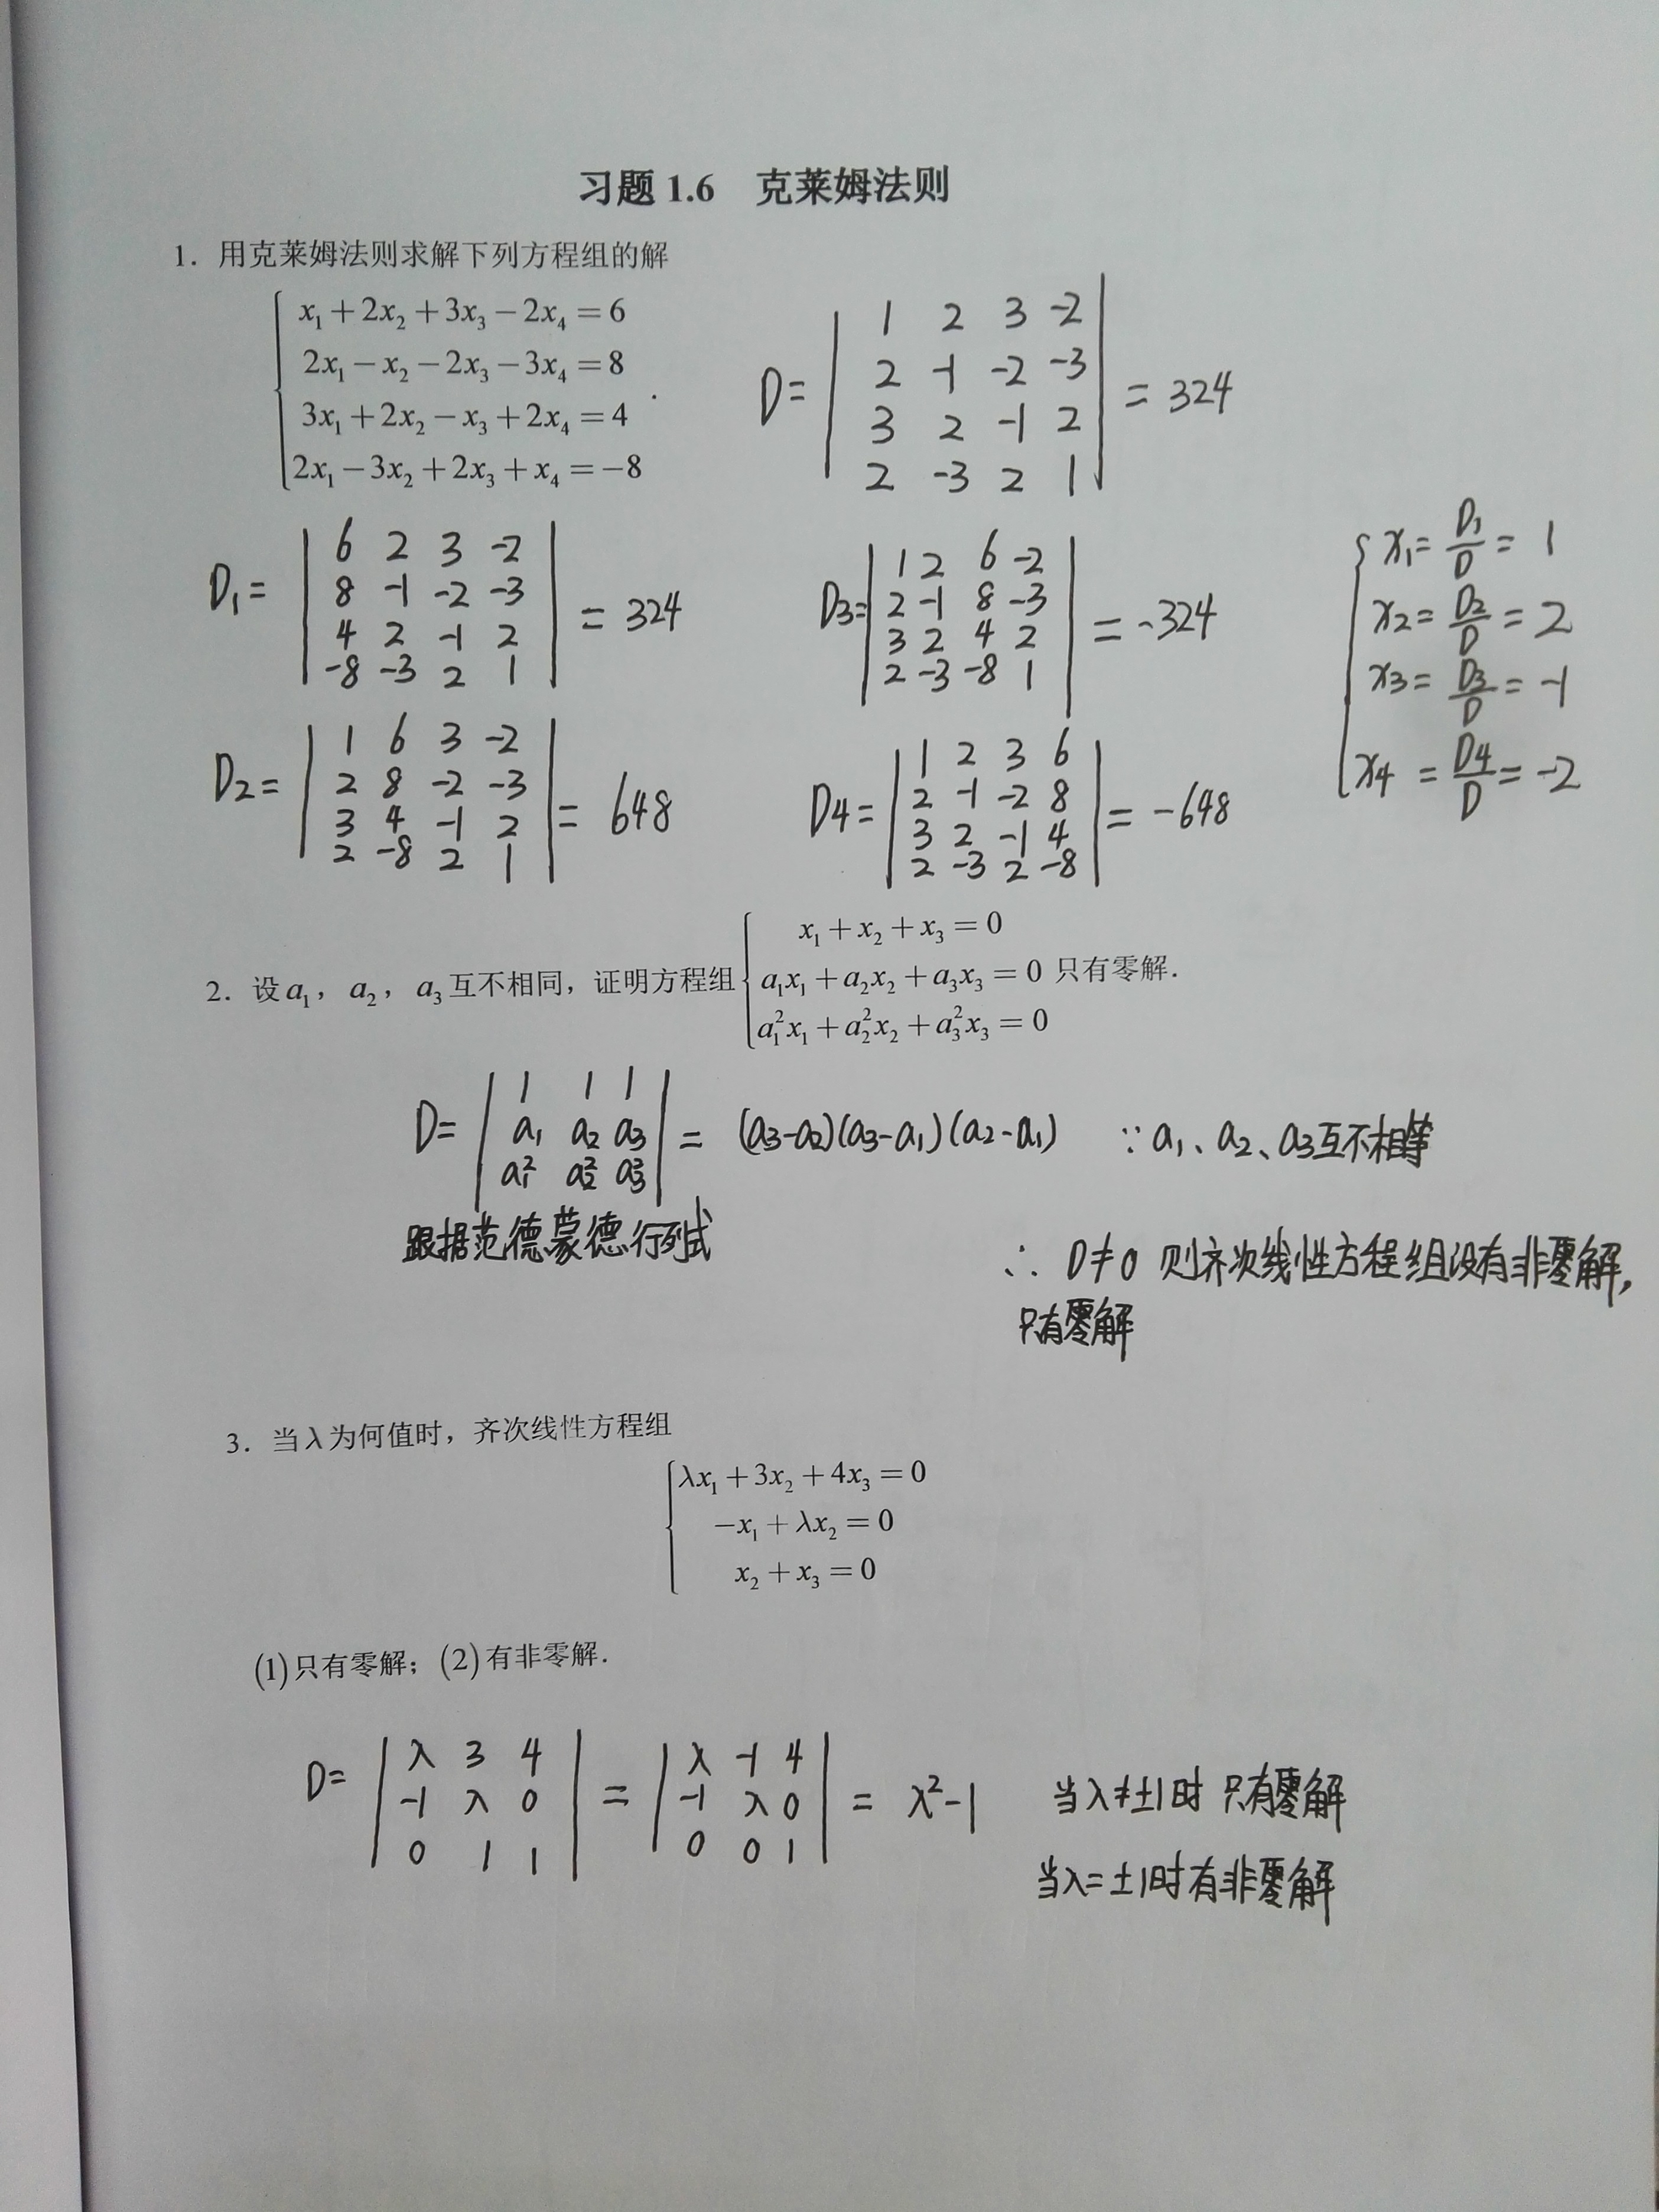 习题 1.6 克莱姆法则
1. 用克莱姆法则求解下列方程组的解
x₁+2x₂+3x₃−2x₄=6
2x₁−x₂−2x₃−3x₄=8
3x₁+2x₂−x₃+2x₄=4
2x₁−3x₂+2x₃+x₄=−8
.
D= | 1 2 3 -2 |
| 2 -1 -2 -3 | = 324
| 3 2 -1 2 |
| 2 -3 2 1 |
D₁= | 6 2 3 -2 |
| 8 -1 -2 -3 | = 324
| 4 2 -1 2 |
| -8 -3 2 1 |
D3= | 1 2 6 -2 |
| 2 -1 8 -3 | = -324
| 3 2 4 2 |
| 2 -3 -8 1 |
x₁= D₁/D = 1
x₂= D₂/D = 2
x3= D3/D = -1
x4 = D4/D = -2
D₂= | 1 6 3 -2 |
| 2 8 -2 -3 | = 648
| 3 4 -1 2 |
| 2 -8 2 1 |
D4= | 1 2 3 6 |
| 2 -1 -2 8 | = -648
| 3 2 -1 4 |
| 2 -3 2 -8 |
2. 设a₁，a₂，a₃互不相同，证明方程组
x₁+x₂+x₃=0
a₁x₁+a₂x₂+a₃x₃=0
a₁²x₁+a₂²x₂+a₃²x₃=0
只有零解.
D= | 1 1 1 |
| a₁ a₂ a₃ | = (a₃-a₂)(a₃-a₁)(a₂-a₁) ∵ a₁、a₂、a₃互不相等
| a₁² a₂² a₃² |
跟据范德蒙德行列式
∴ D≠0 则齐次线性方程组没有非零解,
只有零解
3. 当λ为何值时，齐次线性方程组
λx₁+3x₂+4x₃=0
−x₁+λx₂=0
x₂+x₃=0
(1)只有零解；(2)有非零解.
D= | λ 3 4 | | λ -1 4 |
| -1 λ 0 | = | -1 λ 0 | = λ²-1 当λ≠±1时 只有零解
| 0 1 1 | | 0 0 1 |
当λ=±1时有非零解